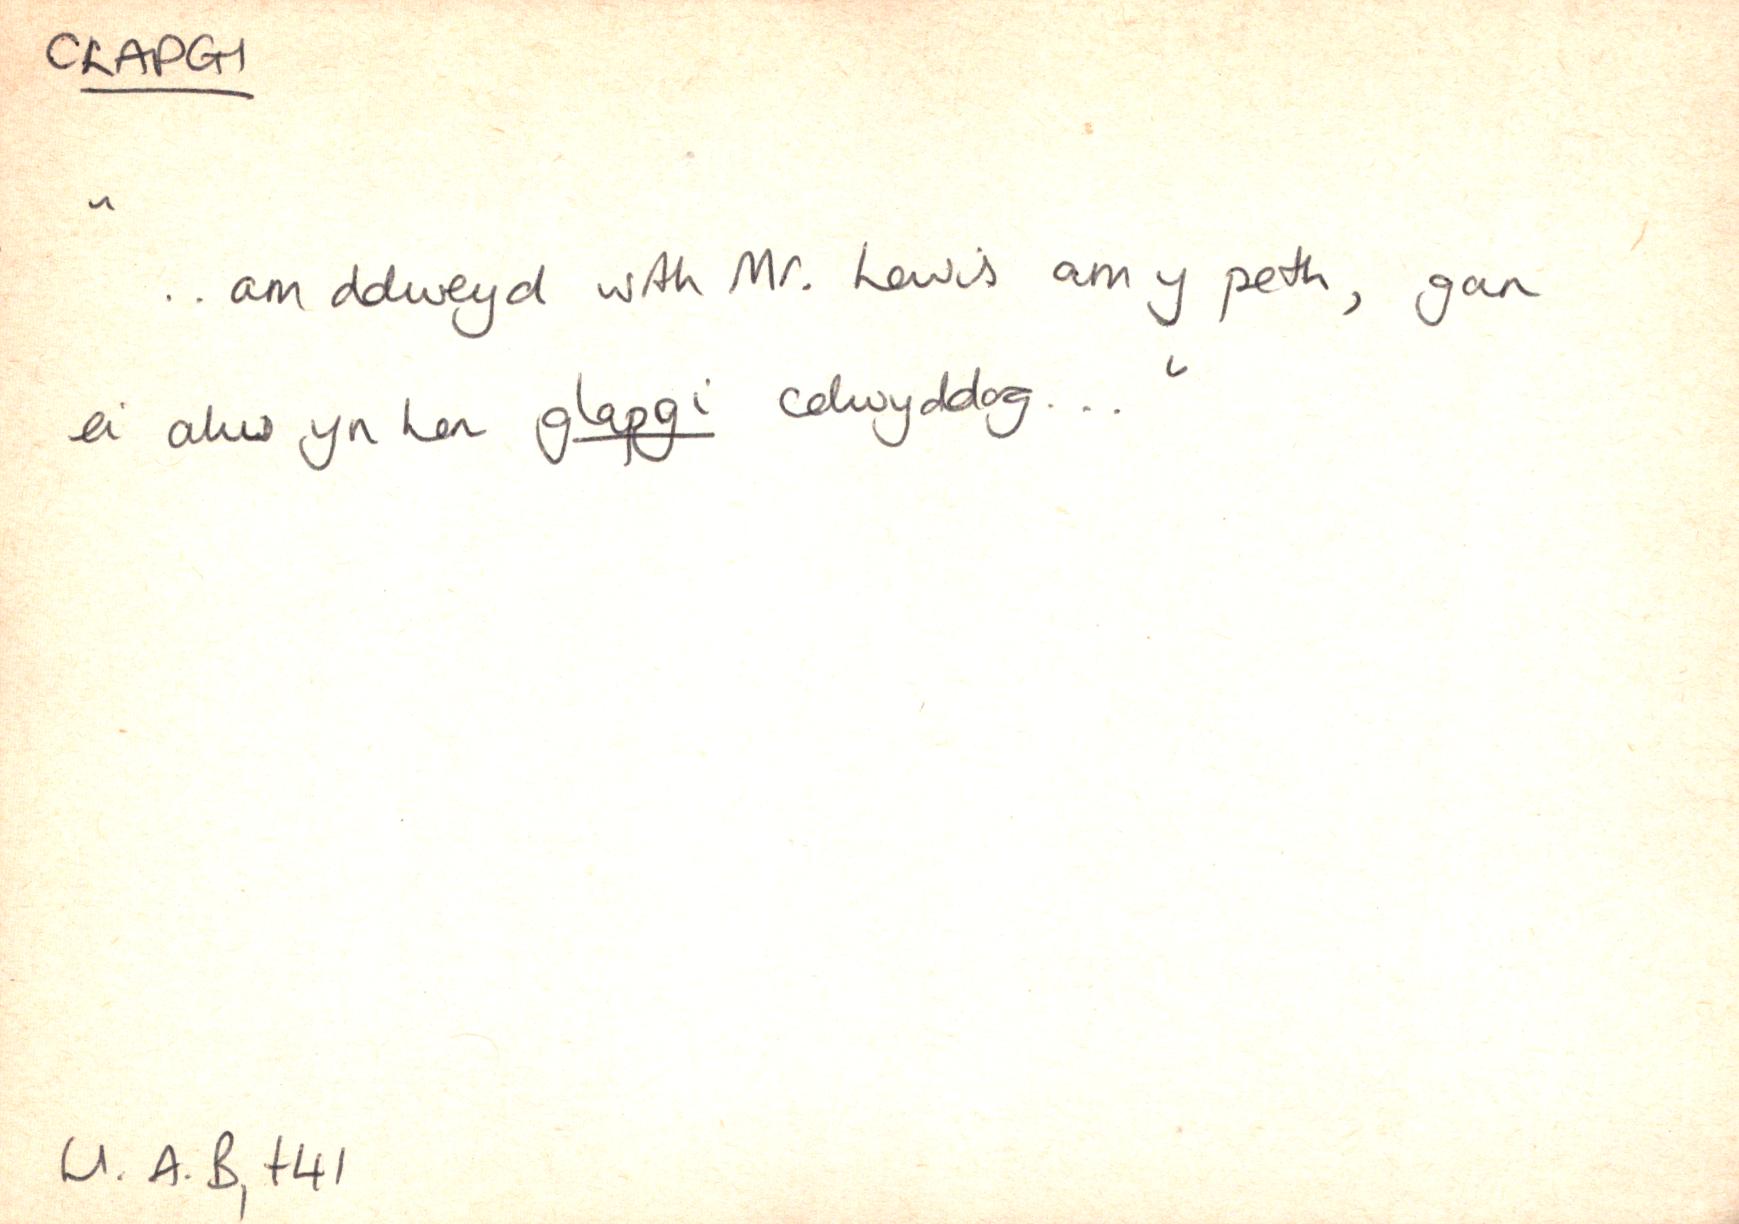 CLAPGI
" .. am ddweyd wrth Mr. Lewis am y peth, gan
ei alw yn hen glapgi celwyddog... "
Ll. A. B, t41